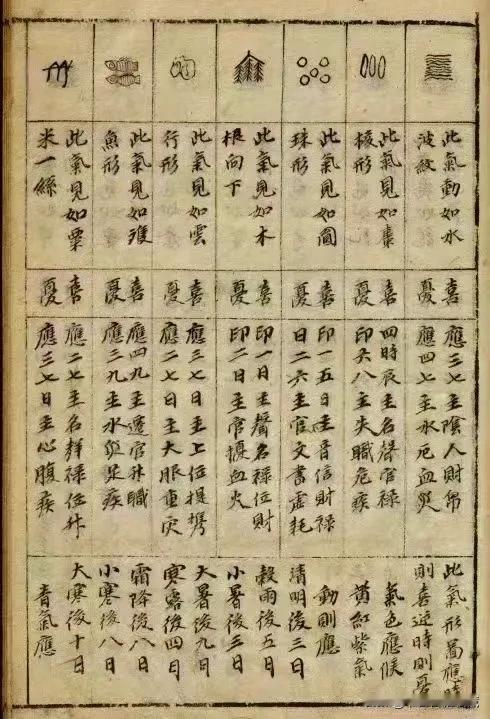 此氣動如水
波紋
此氣見如棗
核形
此氣見如圓
珠形
此氣見如木
根向下
此氣見如雲
行形
此氣見如雙
魚形
此氣見如粟
米一絲
喜
憂
喜
憂
喜
憂
喜
憂
喜
憂
喜
憂
喜
憂
應三七主陰人財帛
應四七主水厄血災
四時辰主名聲官祿
印六八主失職危疾
印一五日主音信財祿
日二六主官文書虛耗
印一日主聲名祿位財
印二日主官擾血火
應三七日主上位提攜
應二七日主大服重灾
應四九主遷官升職
應三九主水災足疾
應二七主名祿位升
應三七日主心腹疾
此氣形應時
則喜逆時則憂
氣色應候
黄紅紫氣
動則應
清明後三日
穀雨後五日
小暑後三日
大暑後九日
寒露後四日
霜降後八日
小寒後八日
大寒後十日
青氣應